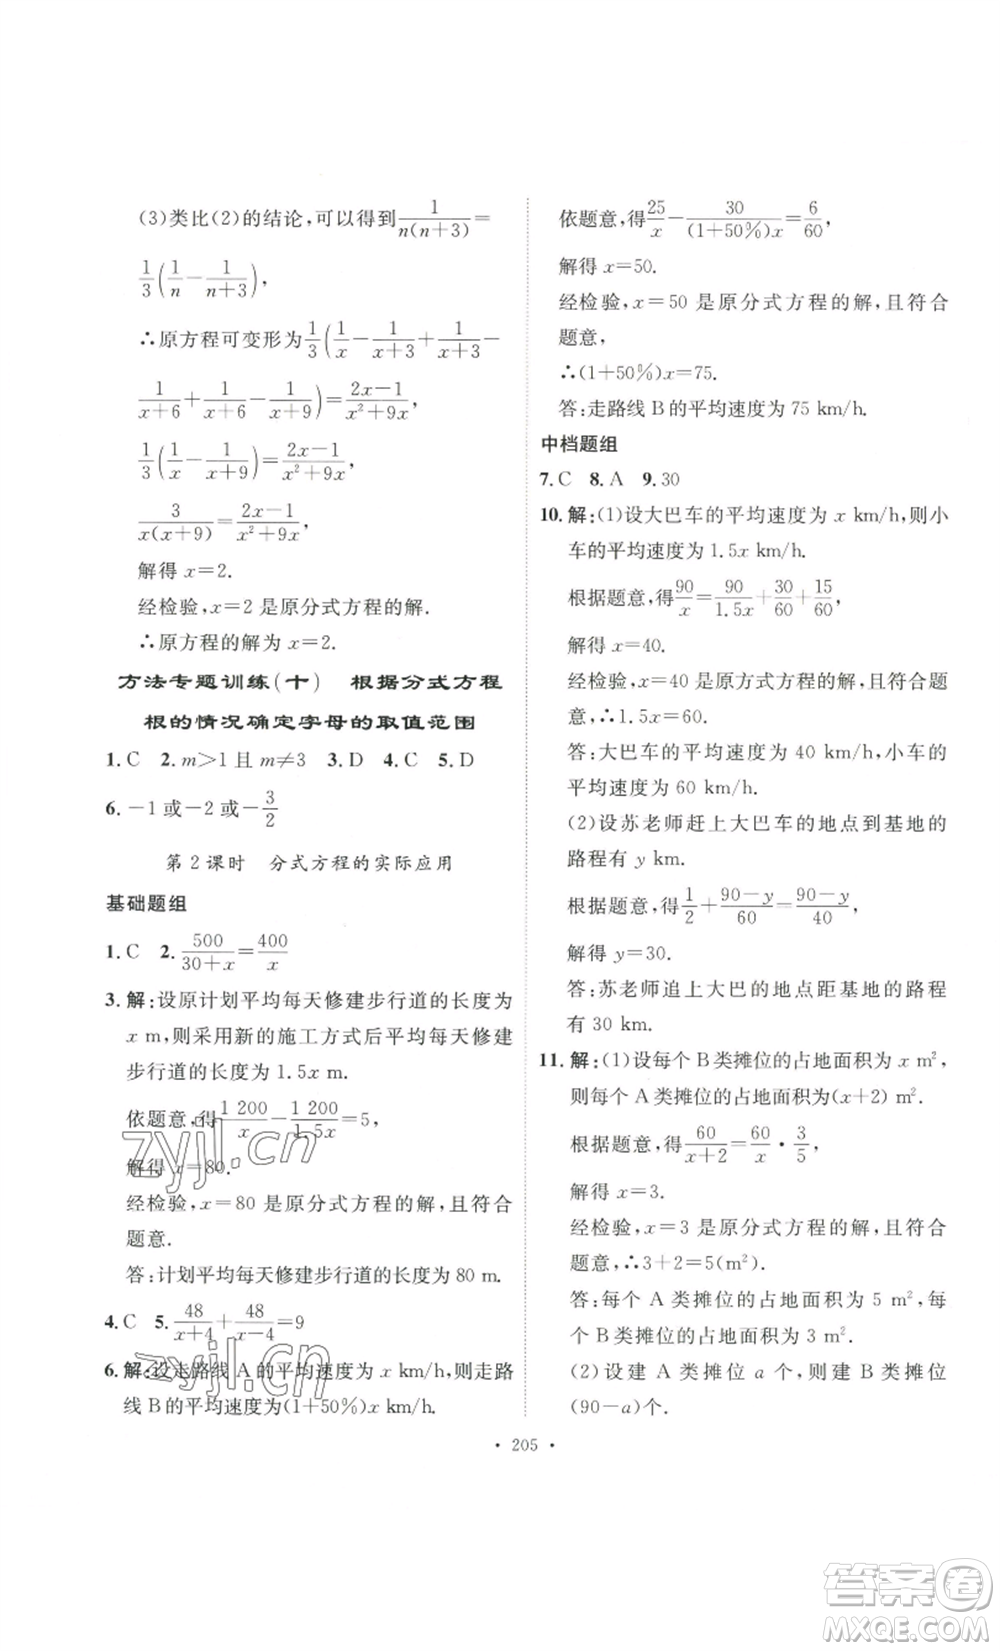 (3)类比(2)的结论,可以得到1/n(n+3)=
1/3(1/n-1/(n+3)),
∴原方程可变形为1/3(1/x-1/(x+3)+1/(x+3)-
1/(x+6)+1/(x+6)-1/(x+9))=(2x-1)/(x²+9x),
1/3(1/x-1/(x+9))=(2x-1)/(x²+9x),
3/x(x+9)=(2x-1)/(x²+9x),
解得 x=2.
经检验,x=2 是原分式方程的解.
∴原方程的解为 x=2.
方法专题训练(十) 根据分式方程
根的情况确定字母的取值范围
1. C 2. m>1 且 m≠3 3. D 4. C 5. D
6. -1 或-2 或-3/2
第 2 课时 分式方程的实际应用
基础题组
1. C 2. 500/(30+x)=400/x
3. 解:设原计划平均每天修建步行道的长度为
x m,则采用新的施工方式后平均每天修建
步行道的长度为 1.5x m.
依题意,得1 200/x-1 200/1.5x=5,
解得 x=80.
经检验,x=80 是原分式方程的解,且符合
题意.
答:计划平均每天修建步行道的长度为 80 m.
4. C 5. 48/(x+4)+48/(x-4)=9
6. 解:设走路线 A 的平均速度为 x km/h,则走路
线 B 的平均速度为(1+50%)x km/h.
依题意,得25/x-30/(1+50%)x=6/60,
解得 x=50.
经检验,x=50 是原分式方程的解,且符合
题意,
∴(1+50%)x=75.
答:走路线 B 的平均速度为 75 km/h.
中档题组
7. C 8. A 9. 30
10. 解:(1)设大巴车的平均速度为 x km/h,则小
车的平均速度为 1.5x km/h.
根据题意,得90/x=90/1.5x+30/60+15/60,
解得 x=40.
经检验,x=40 是原方式方程的解,且符合题
意,∴1.5x=60.
答:大巴车的平均速度为 40 km/h,小车的
平均速度为 60 km/h.
(2)设苏老师赶上大巴车的地点到基地的
路程有 y km.
根据题意,得1/2+(90-y)/60=(90-y)/40,
解得 y=30.
答:苏老师追上大巴的地点距基地的路程
有 30 km.
11. 解:(1)设每个 B类摊位的占地面积为 x m²,
则每个 A类摊位的占地面积为(x+2) m².
根据题意,得60/(x+2)=60/x·3/5,
解得 x=3.
经检验,x=3 是原分式方程的解,且符合
题意,∴3+2=5(m²).
答:每个 A 类摊位的占地面积为 5 m²,每
个 B类摊位的占地面积为 3 m².
(2)设建 A 类摊位 a 个,则建 B 类摊位
(90-a)个.
• 205 •
zyjl.cn
zyjl.cn
答案圈
MXQE.COM